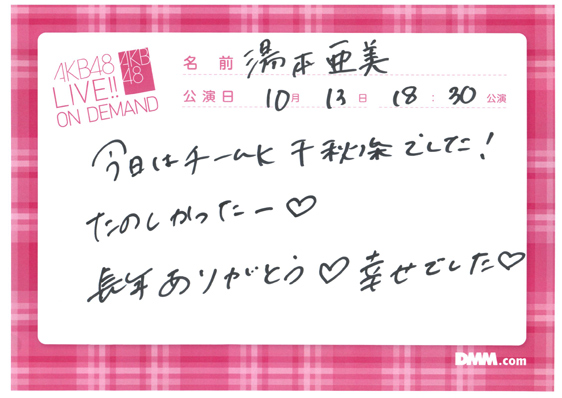 AKB48
LIVE!!
ON DEMAND
AKB
48
名前 湯本亜美
公演日 10月 13日 18:30公演
今日はチームK 千秋楽でした!
たのしかったー♡
長年ありがとう♡幸せでした♡
DMM.com